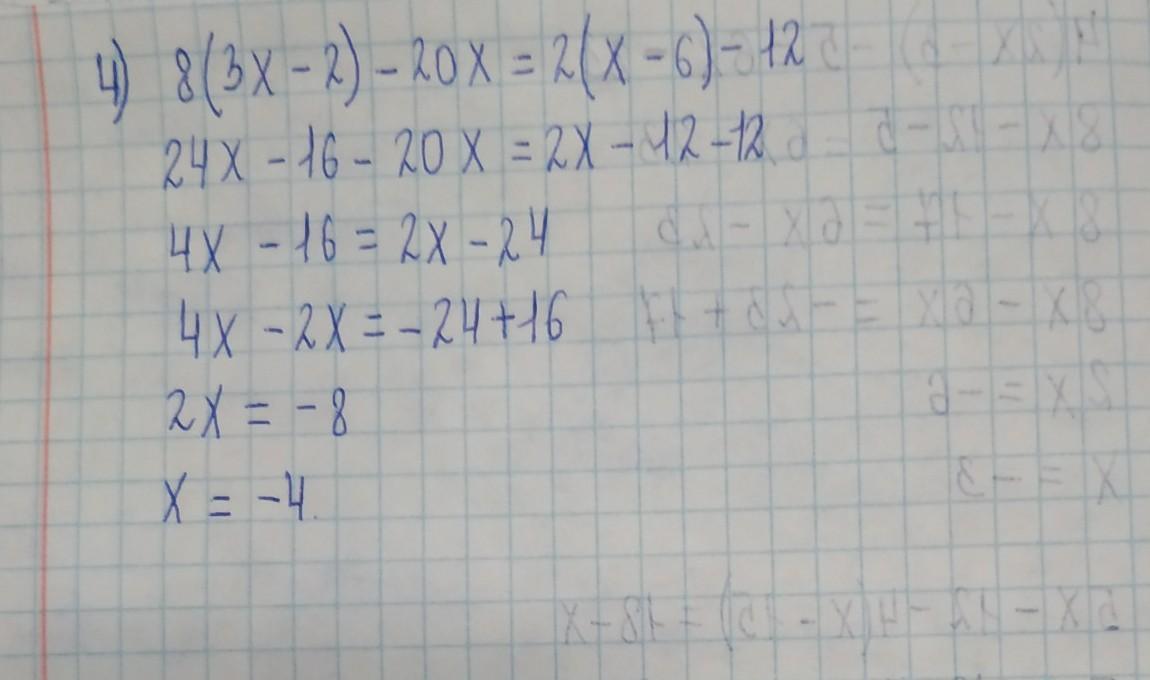 4) 8(3x - 2) - 20x = 2(x - 6) - 12
24x - 16 - 20x = 2x - 12 - 12
4x - 16 = 2x - 24
4x - 2x = - 24 + 16
2x = - 8
x = - 4.